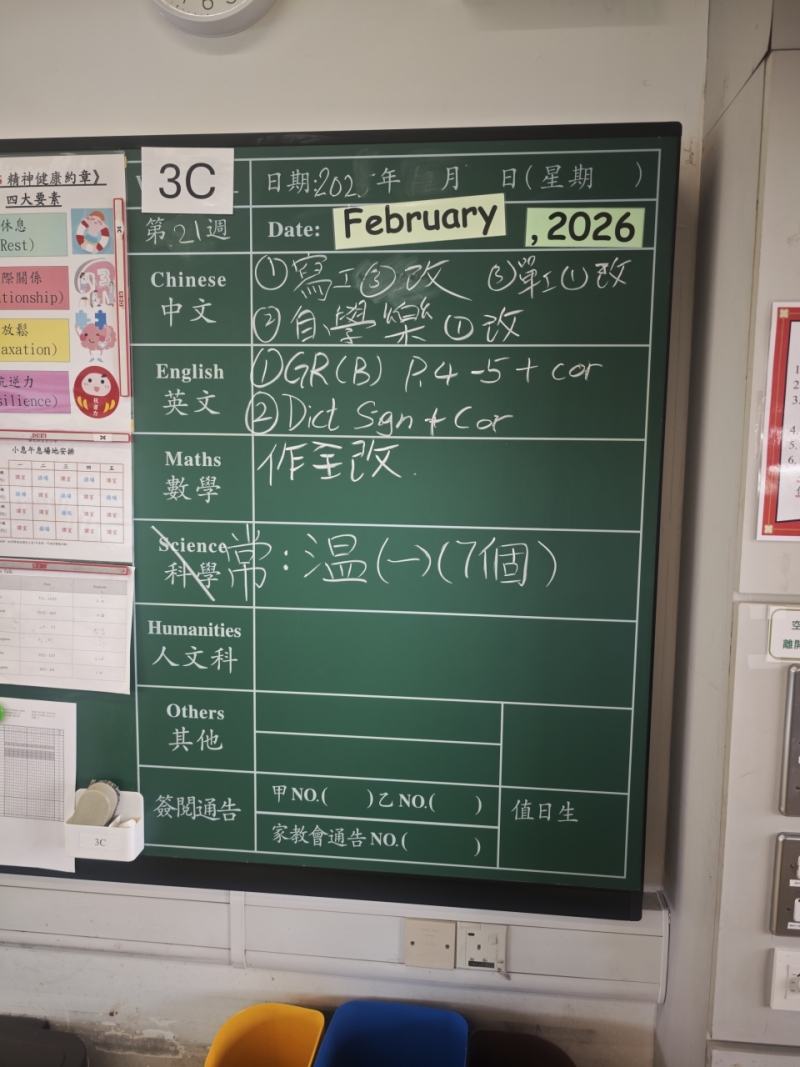 精神健康約章》
四大要素
休息
Rest)
際關係
tionship)
放鬆
axation)
抗逆力
silience)
小息午息場地安排
一 二 三 四 五
3C
日期:202 年 月 日(星期 )
第21週
Date: February , 2026
Chinese
中文
①寫工③改 ③單工①改
②自學樂①改
English
英文
①GR(B) P.4-5 + cor
②Dict Sgn + Cor
Maths
數學
作全改
Science
科學
常:温(一)(7個)
Humanities
人文科
Others
其他
簽閱通告
甲NO.( )乙NO.( )
家教會通告NO.( )
值日生
3C